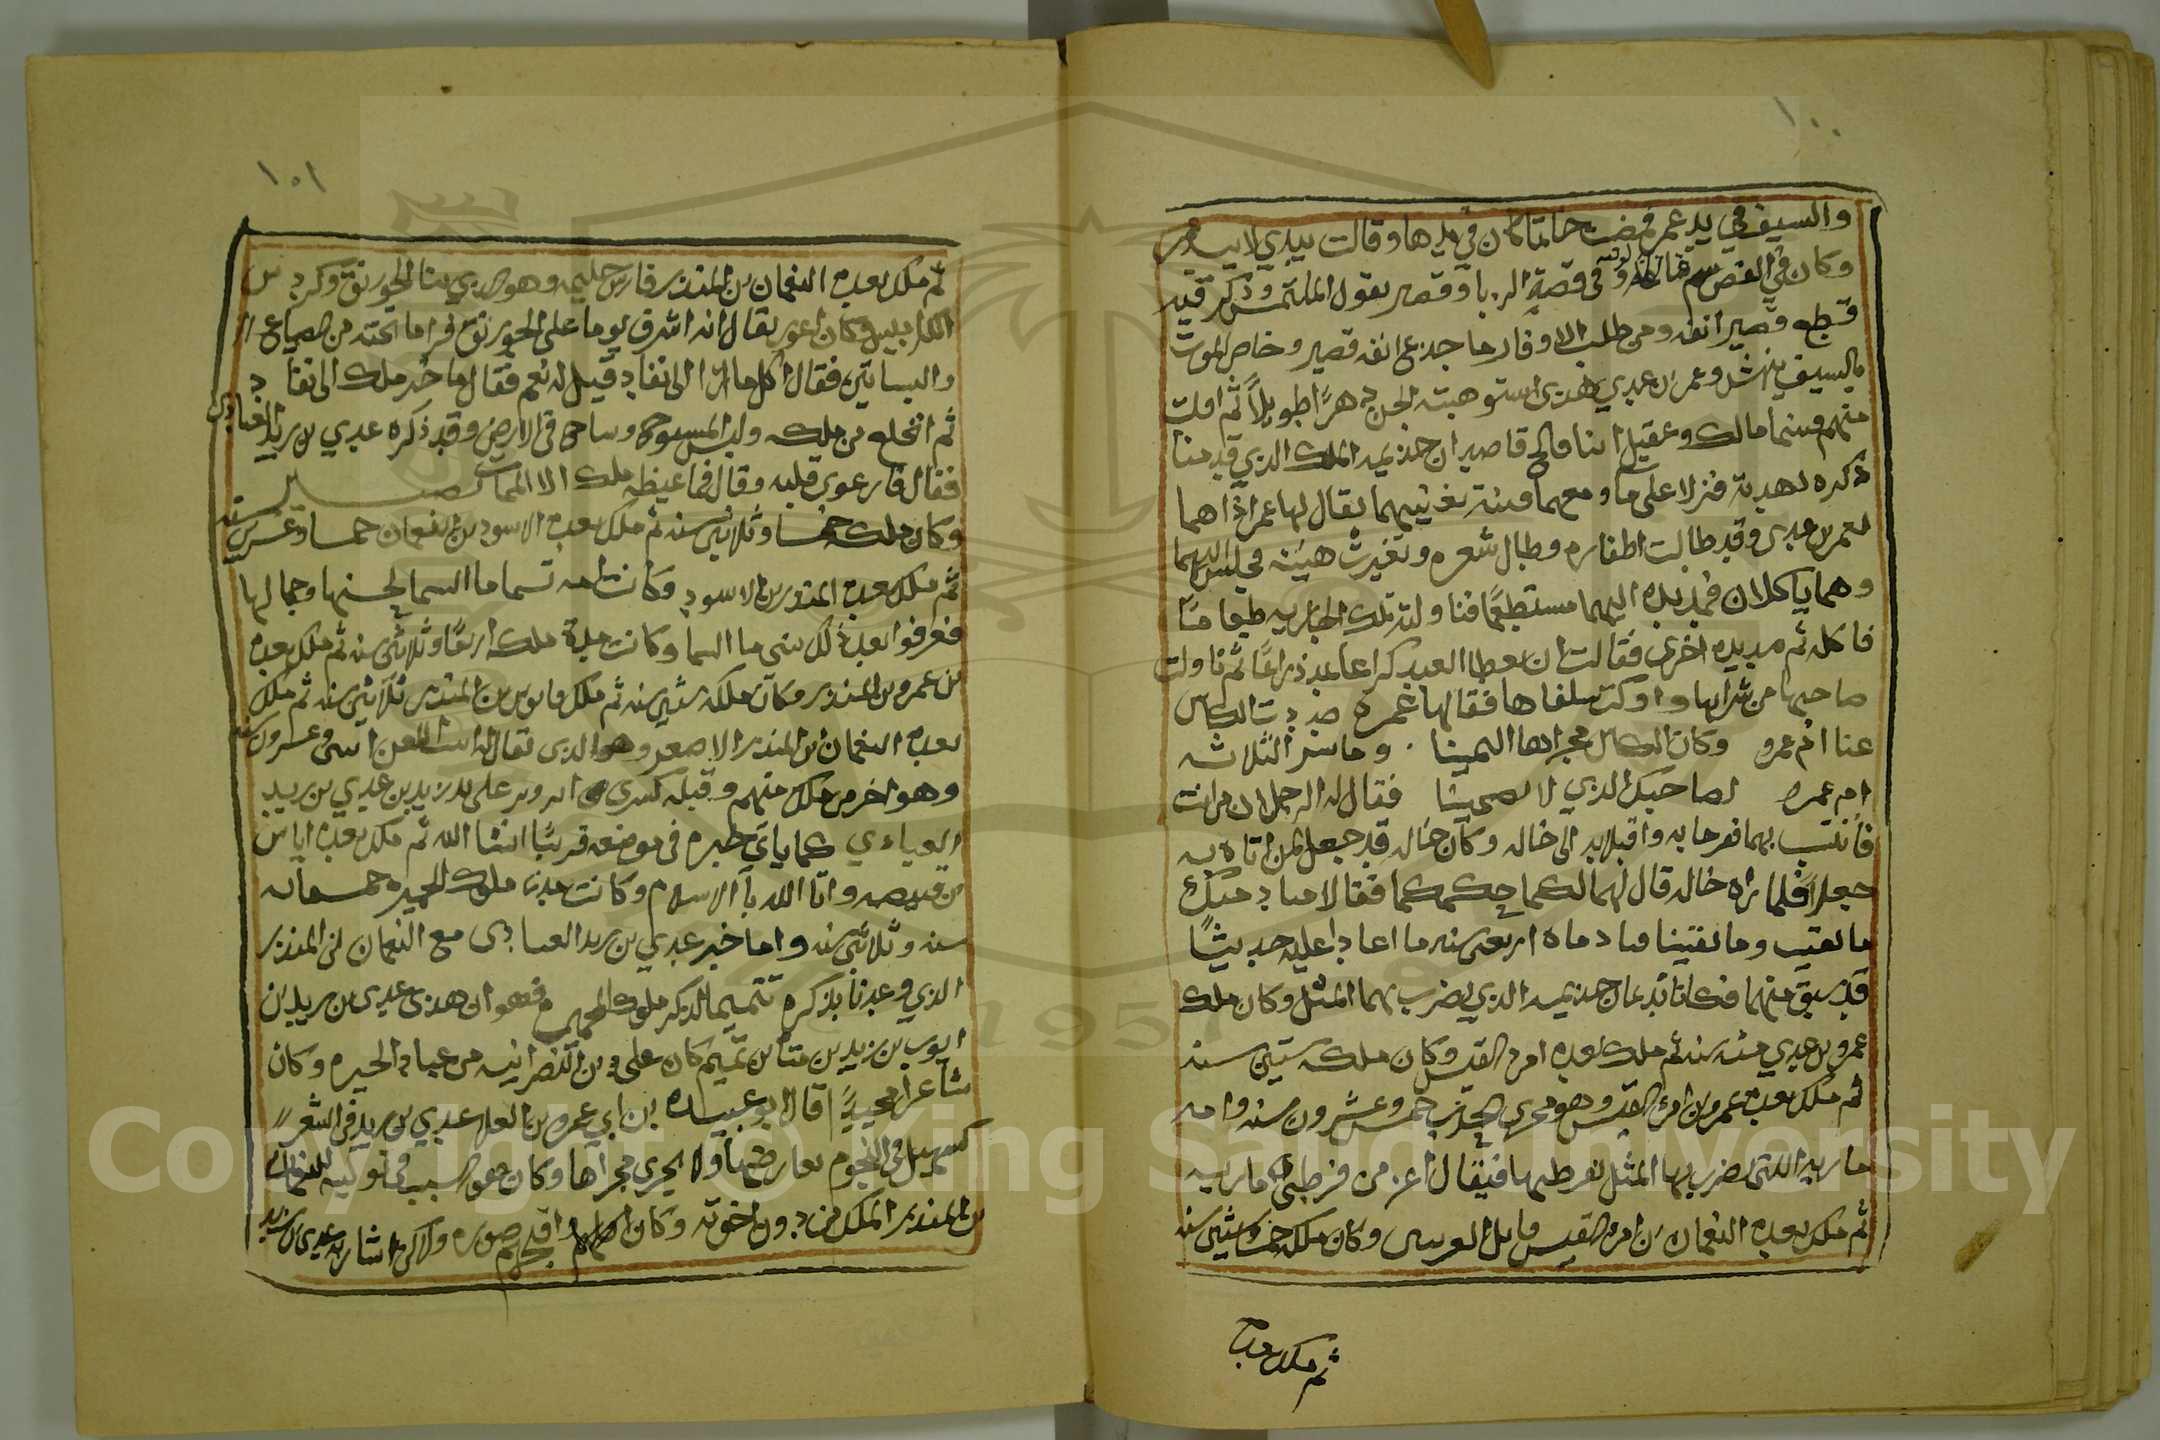 ١٠٠
والسيف في يد عمر فمضت خاتما كان في يدها وقالت بيدي لا بيد عمر
وكان في الفص سم فماتت وفي قصة الزبا وقصير يقول الملتمس وذكر فيه
قطع قصير انفه ومن طلب الاوفار ما جدع انفه قصير وخاض الموت
بالسيف بيهش وعمر بن عدي هذا استهوته الجن دهرًا طويلاً ثم افلت
منهم وبينما مالك وعقيل ابنا فالج قاصدان جذيمه الملك الذي قدمنا
ذكره لهدية فنزلا على ما ومعهما قينة تغنيهما يقال لها عمر اذ اهما
بعمر بن عدي وقد طالت اظفاره وطال شعره وتغيرت هيئته فجلس اليهما
وهما ياكلان فمد يده اليهما مستطعمًا فناولته تلك الجاريه طعامًا
فاكله ثم مد يده اخرى فقالت ان يعطا العبد كراعا يمد ذراعًا ثم ناولت
صاحبها من شرابها واوكت سقاها فقال لها عمر صددت الكاس
عنا ام عمرو وكان الكاس مجراها اليمينا . وما شر الثلاثه
ام عمرو بصاحبك الذي لا تصحبينا فقال له الرجلان من انت
فانتسب لهما ففرحا به واقبلا به الى خاله وكان خاله قد جعل لمن اتاه به
جعلاً فلما راه خاله قال لهما لكما حكمكما فقالا منادمتك
ما بقيت وما بقينا فنادماه اربعين سنه ما اعادا عليه حديثًا
قد سبق منهما فكانا ندمان جذيمه الذي يضرب بهما المثل وكان ملك
عمرو بن عدي مئه سنه ثم ملك بعده امرء القيس وكان ملكه ستين سنه
ثم ملك بعده عمرو بن امرء القيس وهو محرق الحرب خمس وعشرون سنه وامه
ماريه اللتي يضرب بها المثل بقرطيها فيقال اعز من قرطي ماريه
ثم ملك بعده النعمان بن امرء القيس قاتل الفرسى وكان ملكه خمسا وثلثين سنه
ثم ملك بعده
١٠١
ثم ملك بعده النعمان بن المنذر فارس حليمه وهو الذي بنا الخورنق وكردس
الكراديس وكان اعور يقال انه اشرف يوما على الخورنق فرا ما تحته من الضياع
والبساتين فقال اكل ما ارا الى نفاد قيل له نعم فقال ما خير ملك الى نفاد
ثم انخلع من ملكه ولبس المسوح وساح في الارض وقد ذكره عدي بن زيد العبادي
فقال فارعوى قلبه وقال فما غبطه ملك الا الممات يصير
وكان ملكه خمسا وثلاثين سنه ثم ملك بعده الاسود بن النعمان خمسا وعشرين سنه
ثم ملك بعده المنذر بن الاسود وكانت امه تسما ما السما لحسنها وجمالها
فعرفوا بعد ذلك ببني ما السما وكانت مدة ملكه اربعًا وثلاثين سنه ثم ملك بعده
بن عمرو بن المنذر وكان ملكه ستين سنه ثم ملك قابوس بن المنذر ثلاثين سنه ثم ملك
بعده النعمان بن المنذر الاصغر وهو الذي يقال له ابيت اللعن اثنى وعشرون سنه
وهو اخر من ملك منهم وقتله كسرى ابرويز على يد زيد بن عدي بن زيد
العبادي كما ياتي خبره في موضعه قريبًا انشا الله ثم ملك بعده اياس
بن قبيصه واتا الله بالاسلام وكانت مدة ملوك الحيره خمسمائه
سنه وثلاثين سنه واما خبر عدي بن زيد العبادي مع النعمان بن المنذر
الذي وعدنا بذكره تتميما لذكر ملوك الحيره فهو ان هذا عدي بن زيد بن
ايوب بن زيد بن مناة بن تميم كان على دين النصرانيه من عباد الحيره وكان
شاعرا مجيدًا قال ابو عبيده بن ابي عمرو بن العلا عدي بن زيد في الشعرا
كسهيل في النجوم يعارضها ولا يجري مجراها وكان هو السبب في توليه النعمان
بن المنذر الملك من دون اخوته وكان اقبحهم صوره ولاكن اشار به عدي بن زيد
Copyright © King Saud University
1957